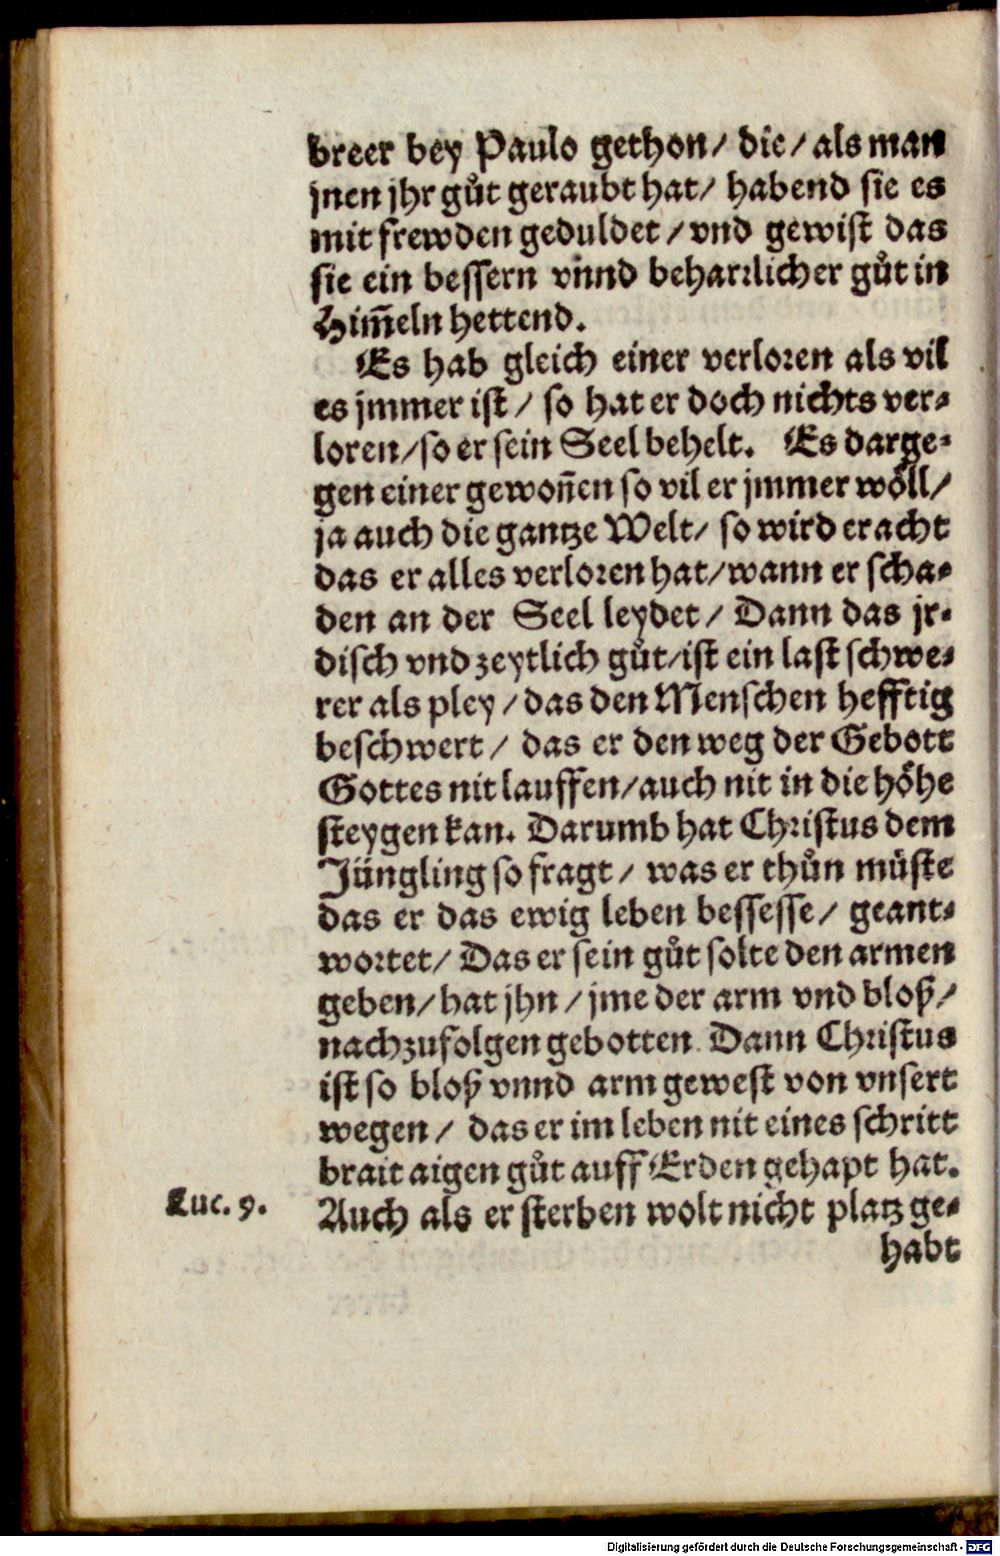 breer bey Paulo gethon/ die/ als man
jnen jhr gůt geraubt hat/ habend sie es
mit frewden geduldet/ vnd gewist das
sie ein bessern vnnd beharrlicher gůt in
Him̃eln hettend.
Es hab gleich einer verloren als vil
es jmmer ist/ so hat er doch nichts ver-
loren/ so er sein Seel behelt. Es darge-
gen einer gewoñen so vil er jmmer wöll/
ja auch die gantze Welt/ so wird er acht
das er alles verloren hat/ wann er scha-
den an der Seel leydet/ Dann das jr-
disch vnd zeytlich gůt/ ist ein last schwe-
rer als pley/ das den Menschen hefftig
beschwert/ das er den weg der Gebott
Gottes nit lauffen/ auch nit in die höhe
steygen kan. Darumb hat Christus dem
Jüngling so fragt/ was er thůn müste
das er das ewig leben bessesse/ geant-
wortet/ Das er sein gůt solte den armen
geben/ hat jhn/ jme der arm vnd bloß/
nachzufolgen gebotten. Dann Christus
ist so bloß vnnd arm gewest von vnsert
wegen/ das er im leben nit eines schritt
brait aigen gůt auff Erden gehapt hat.
Luc. 9.
Auch als er sterben wolt nicht platz ge-
habt
Digitalisierung gefördert durch die Deutsche Forschungsgemeinschaft - DFG